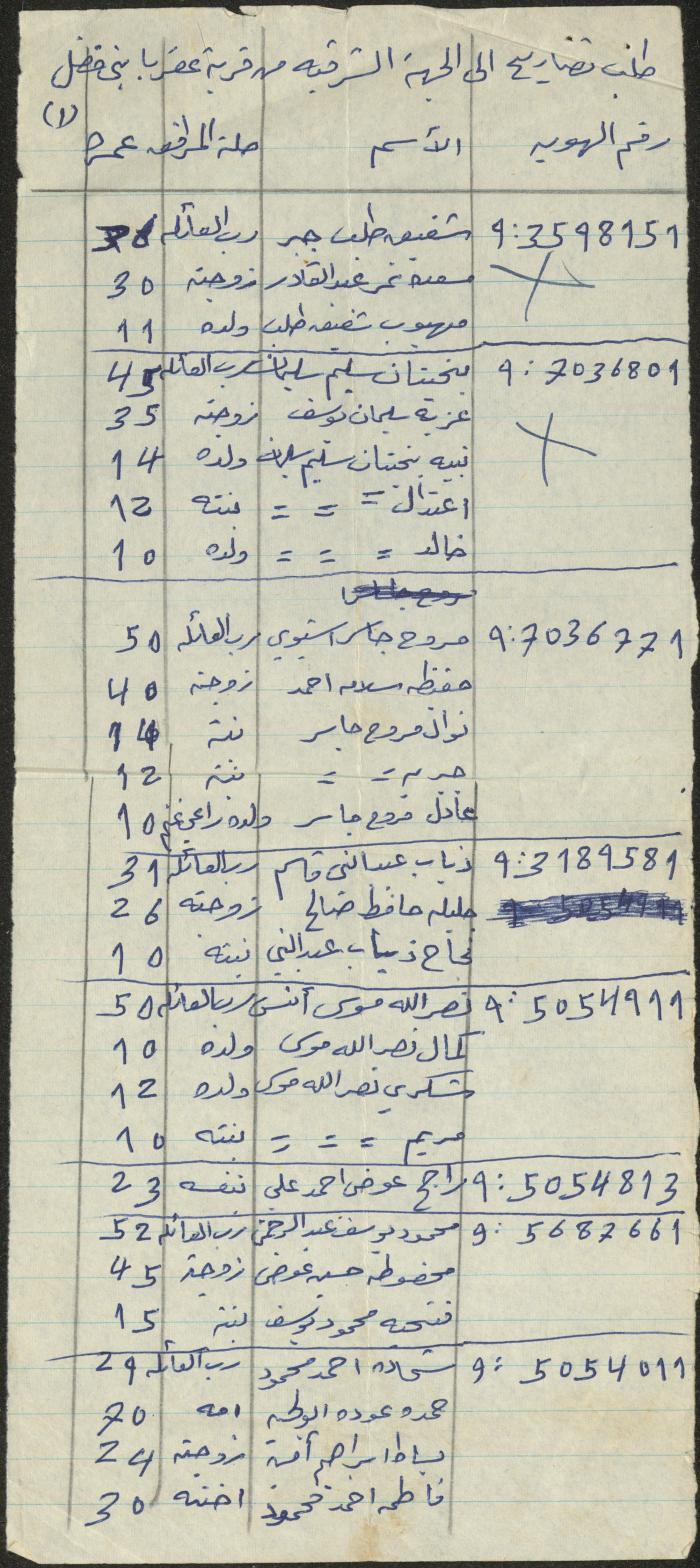 طلب تصاريح الى الجهة الشرقيه من قرية عقربا بني فضل
(١)
رقم الهويه الأسم صلة المرافق عمره
9:3598151 شفيق طلب جبر رب العائله
نمر عبدالقادر زوجته 30
شفيق طلب ولده 11
9: 7036801 سليم سليمان رب العائله 45
عزيه سليمان يوسف زوجته 35
نبيه سليم سليمان ولده 14
اعتدال = = = بنته 12
خالد = = = ولده 10
9:7036771 مروح جاسر اشتيوي رب العائله 50
حفيظه سلامه احمد زوجته 40
نوال مروح جاسر بنته 14
= = بنته 12
عادل مروح جاسر ولده راعي غنم 10
9:3189581 ذياب عبدالنبي قاسم رب العائله 31
جليله حافظ صالح زوجته 26
نجاح ذياب عبدالنبي بنته 10
9: 5054911 نصرالله موسى رب العائله 50
كمال نصرالله موسى ولده 10
شكري نصرالله موسى ولده 12
مريم = = = بنته 10
9: 5054813 راجح عوض احمد علي نفسه 23
9: 5687661 محمود يوسف عبدالرحمن رب العائله 52
محفوظه حسين عوض زوجته 45
فتحيه محمود يوسف بنته 15
9: 5054011 شحاده احمد محمود رب العائله 29
حمده عوده امه 70
ابراهيم زوجته 24
فاطمه احمد محمود اخته 30